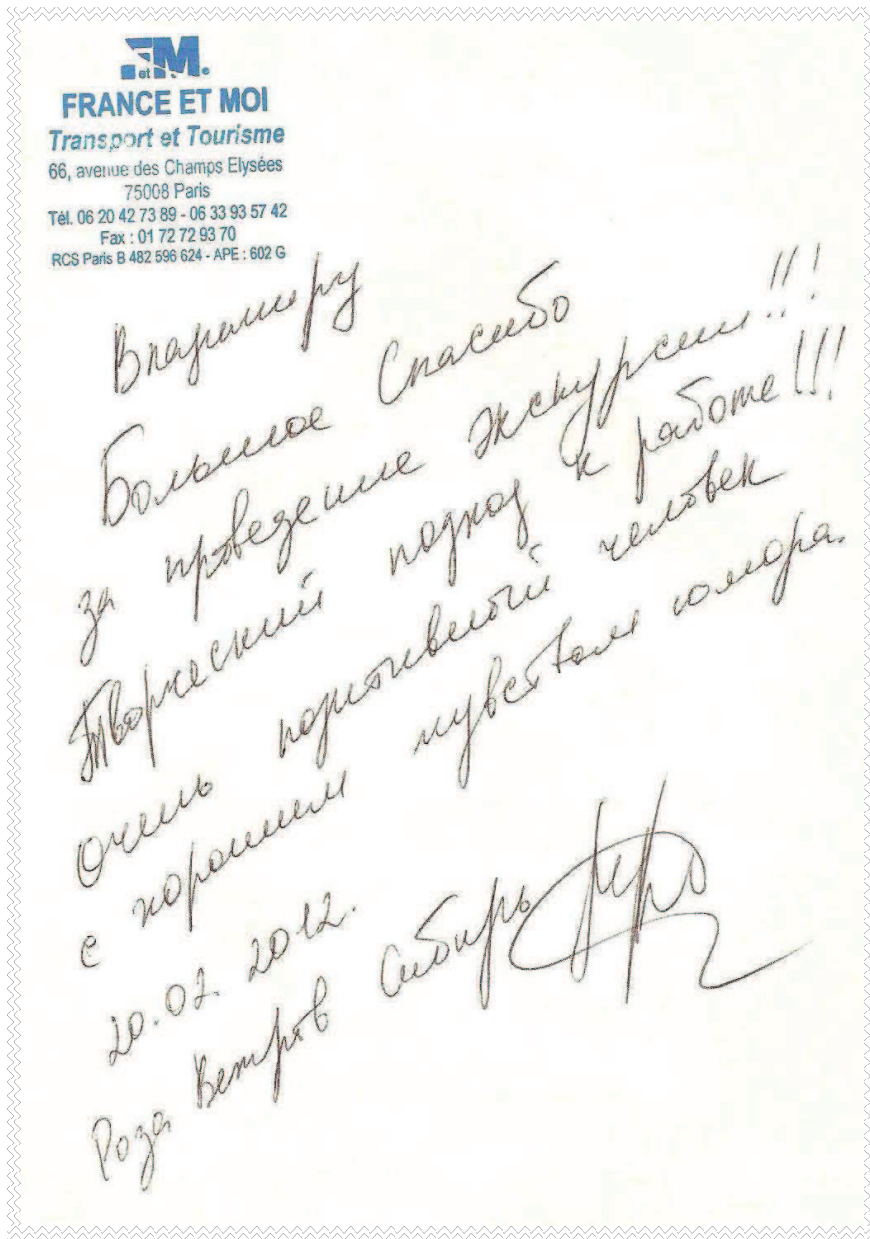 F et M.
FRANCE ET MOI
Transport et Tourisme
66, avenue des Champs Elysées
75008 Paris
Tél. 06 20 42 73 89 - 06 33 93 57 42
Fax : 01 72 72 93 70
RCS Paris B 482 596 624 - APE : 602 G
Владимиру
Большое Спасибо
за проведение экскурсии!!!
Творческий подход к работе!!!
Очень позитивный человек
с хорошим чувством юмора.
20.02.2012.
Роза Ветров Сибирь